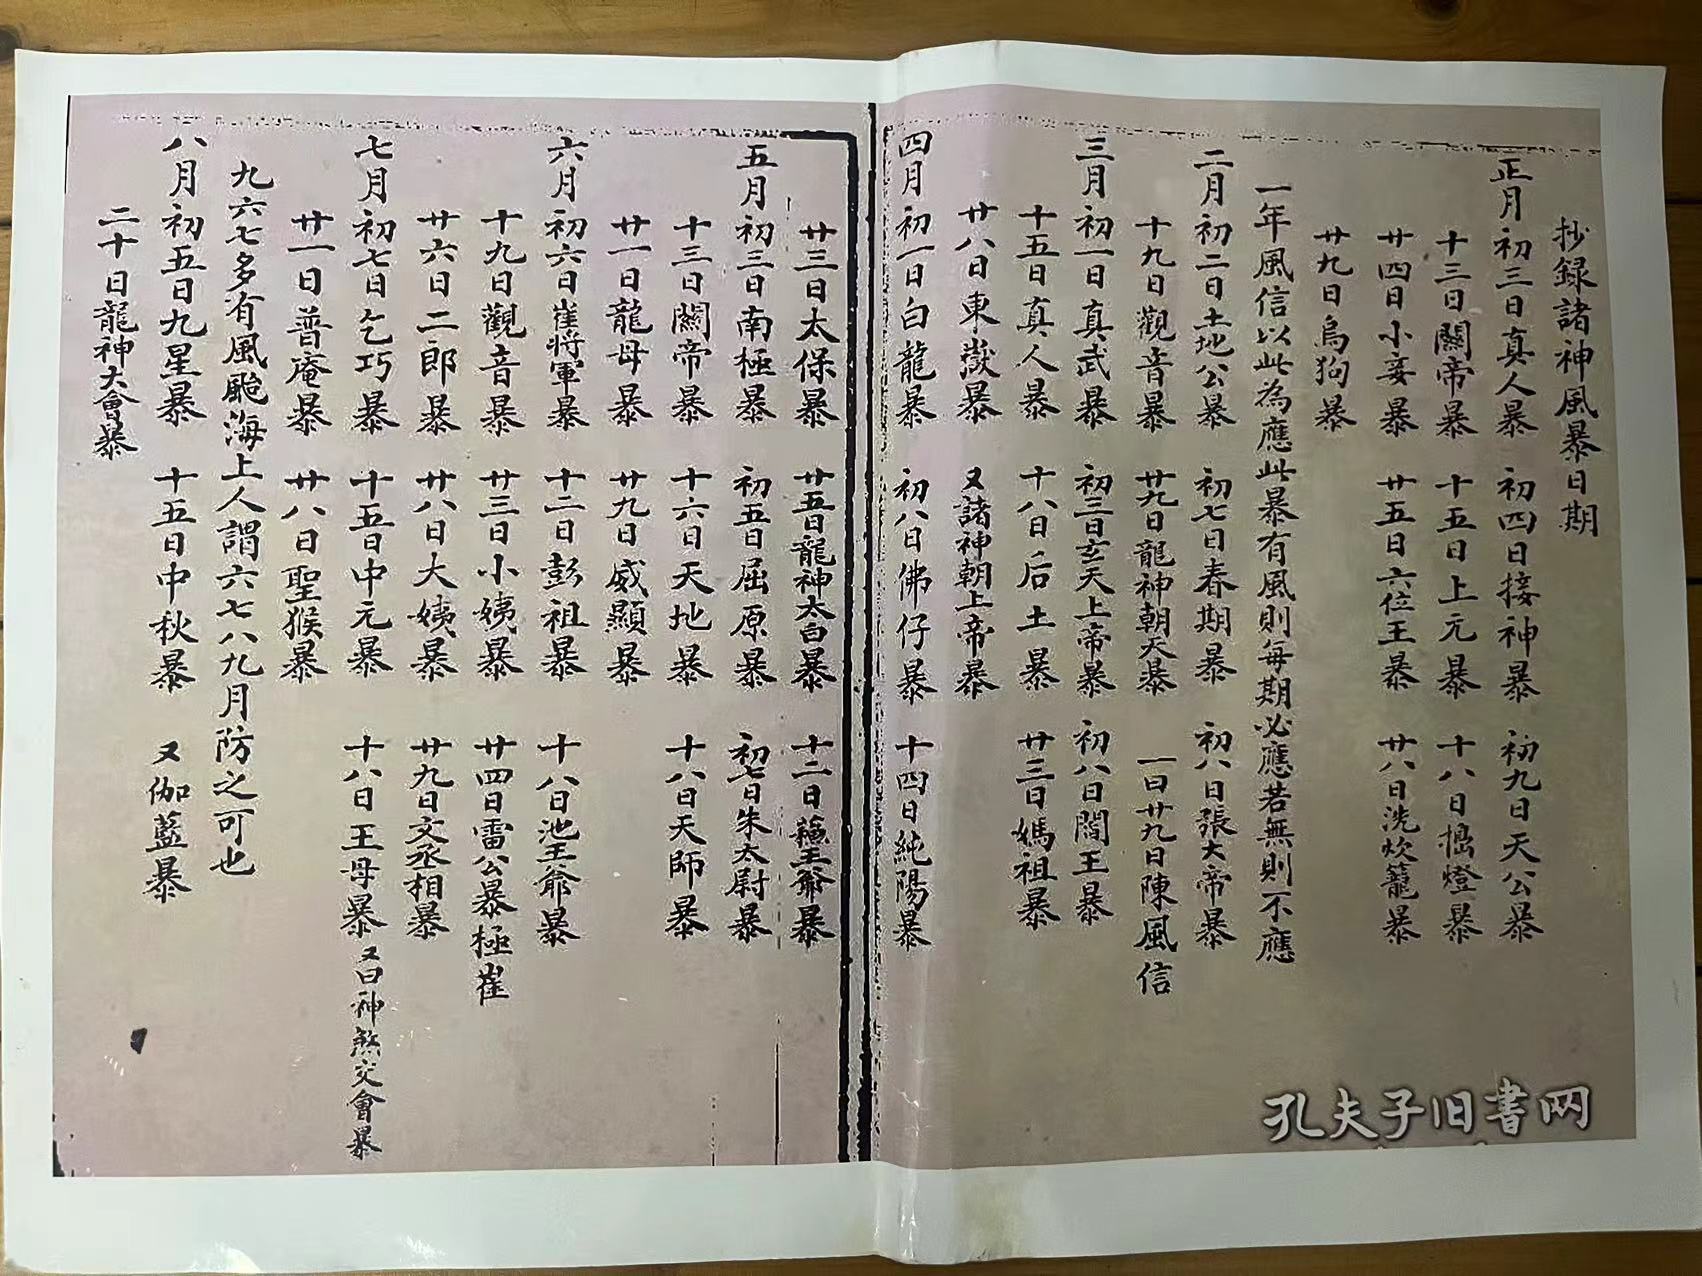 抄録諸神風暴日期
正月初三日真人暴 初四日接神暴 初九日天公暴
十三日關帝暴 十五日上元暴 十八日搗燈暴
廿四日小妾暴 廿五日六位王暴 廿八日洗炊籠暴
廿九日烏狗暴
一年風信以此為應此暴有風則每期必應若無則不應
二月初二日土地公暴 初七日春期暴 初八日張大帝暴
十九日觀音暴 廿九日龍神朝天暴 一曰廿九日陳風信
三月初一日真武暴 初三日玄天上帝暴 初八日閻王暴
十五日真人暴 十八日后土暴 廿三日媽祖暴
廿八日東嶽暴 又諸神朝上帝暴
四月初一日白龍暴 初八日佛仔暴 十四日純陽暴
廿三日太保暴 廿五日龍神太白暴 十二日蘇王爺暴
五月初三日南極暴 初五日屈原暴 初七日朱太尉暴
十三日關帝暴 十六日天地暴 十八日天師暴
廿一日龍母暴 廿九日威顯暴
六月初六日崔將軍暴 十二日彭祖暴 十八日池王爺暴
十九日觀音暴 廿三日小姨暴 廿四日雷公暴極崔
廿六日二郎暴 廿八日大姨暴 廿九日文丞相暴
七月初七日乞巧暴 十五日中元暴 十八日王母暴 又曰神煞交會暴
廿一日普庵暴 廿八日聖猴暴
九六七多有風颱海上人謂六七八九月防之可也
八月初五日九星暴 十五日中秋暴 又伽藍暴
二十日龍神大會暴
孔夫子旧書网